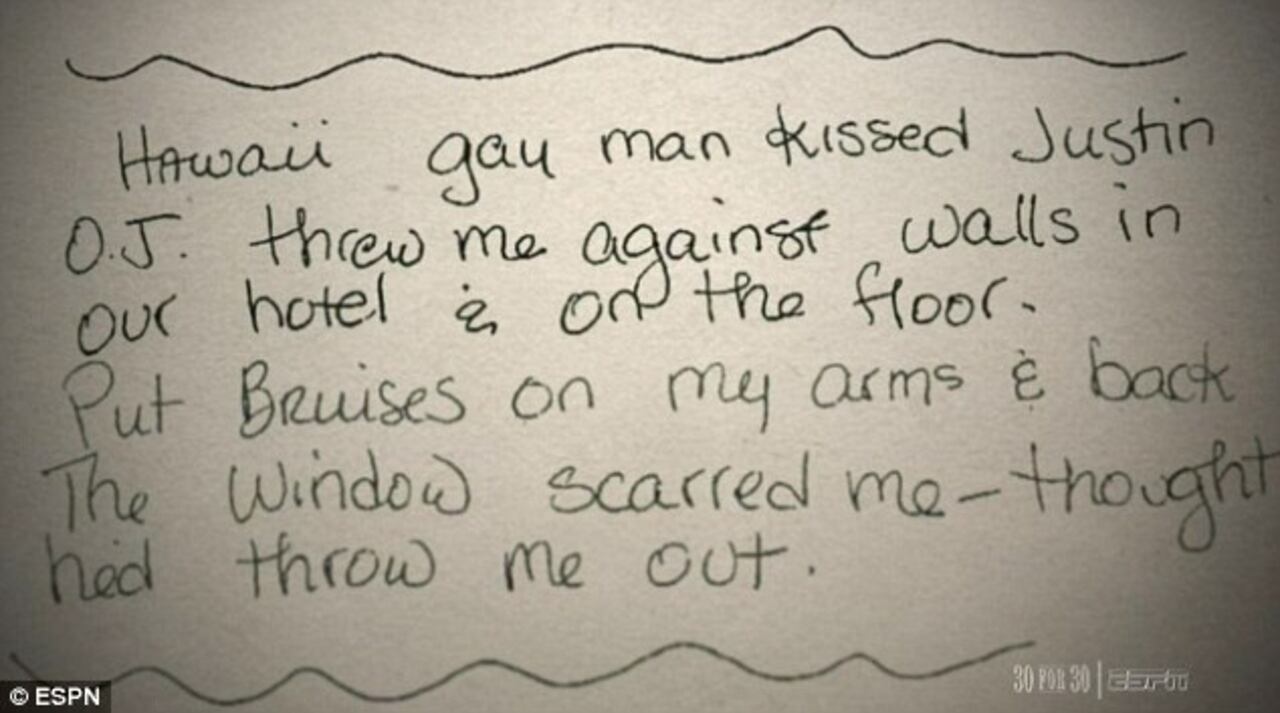 Hawaii gay man kissed Justin
O.J. threw me against walls in
our hotel & on the floor.
Put Bruises on my arms & back
The window scarred me - thought
hed throw me out.
30 FOR 30 | ESPN
© ESPN